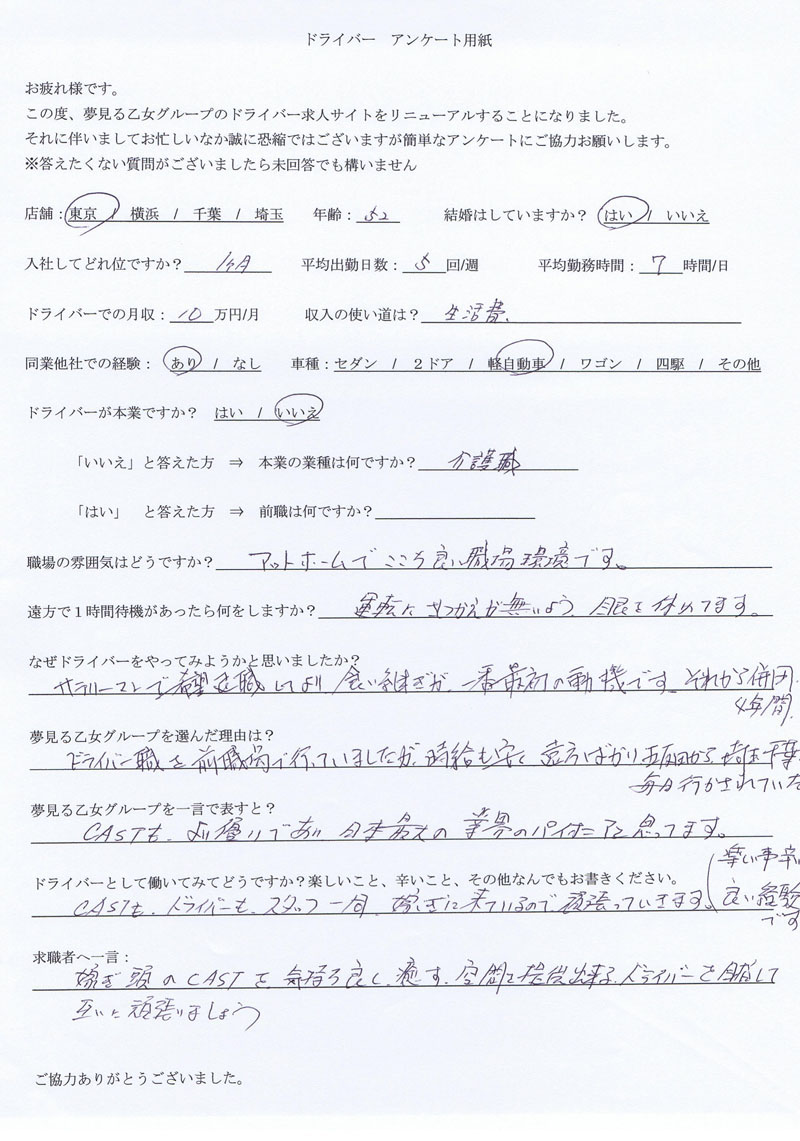 ドライバー　アンケート用紙
お疲れ様です。
この度、夢見る乙女グループのドライバー求人サイトをリニューアルすることになりました。
それに伴いましてお忙しいなか誠に恐縮ではございますが簡単なアンケートにご協力お願いします。
※答えたくない質問がございましたら未回答でも構いません
店舗：東京 / 横浜 / 千葉 / 埼玉　年齢：52　結婚はしていますか？ はい / いいえ
入社してどれ位ですか？ 1ヶ月　平均出勤日数： 5 回/週　平均勤務時間： 7 時間/日
ドライバーでの月収： 10 万円/月　収入の使い道は？ 生活費、
同業他社での経験： あり / なし　車種：セダン / 2ドア / 軽自動車 / ワゴン / 四駆 / その他
ドライバーが本業ですか？ はい / いいえ
「いいえ」と答えた方 ⇒ 本業の業種は何ですか？ 介護職
「はい」 と答えた方 ⇒ 前職は何ですか？
職場の雰囲気はどうですか？ アットホームで ここち良い職場環境です。
遠方で１時間待機があったら何をしますか？ 運転にさつかえが無いよう、眼を休めてます。
なぜドライバーをやってみようかと思いましたか？
サラリーマンで希望退職してより 食い継ぎが、一番最初の動機です。それから
4年間、
夢見る乙女グループを選んだ理由は？
ドライバー職を前職場で行っていましたが、時給も安く 遠方ばかり 五反田から、埼玉 千葉
毎日行かされていた
夢見る乙女グループを一言で表すと？
CASTも、より選りであり 日本最大の 業界のパイオニアと思ってます。
ドライバーとして働いてみてどうですか？楽しいこと、辛いこと、その他なんでもお書きください。
CASTも、ドライバーも、スタッフ一同、稼ぎに来ているので頑張っていきます。
良い経験
です
求職者へ一言：
稼ぎ頭のCASTを、気持ち良く、癒す、空間を提供出来る、ドライバーを目指して
互いに頑張りましょう
ご協力ありがとうございました。